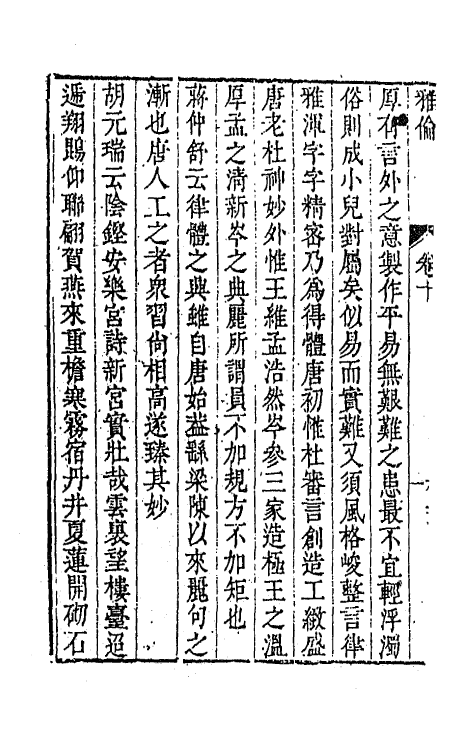 雅倫
卷十
厚有言外之意製作平易無艱難之患最不宜輕浮濁
俗則成小兒對屬矣似易而實難又須風格峻整言律
雅渾字字精密乃為得體唐初惟杜審言創造工緻盛
唐老杜神妙外惟王維孟浩然岑參三家造極王之溫
厚孟之清新岑之典麗所謂員不加規方不加矩也
蔣仲舒云律體之興雖自唐始葢繇梁陳以來麗句之
漸也唐人工之者衆習尚相高遂臻其妙
胡元瑞云陰鏗安樂宮詩新宮實壯哉雲裏望樓臺迢
遞翔鵾仰聯翩賀燕來重檐寒霧宿丹井夏蓮開砌石